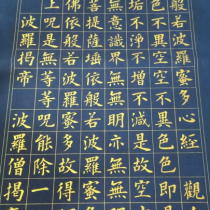 般若波羅蜜多心經 觀
色不異空空不異色色即是空
垢不淨不增不減是故空
無意識界無無明亦無無
菩提薩埵依般若波羅蜜多故
佛依般若波羅蜜多故得
上呪是無等等呪能除一
波羅揭帝波羅僧揭